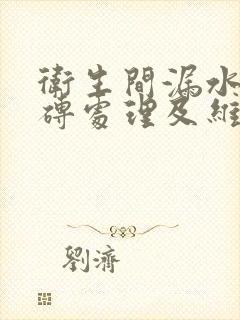 衛生間漏水
磚處理及維
劉濟